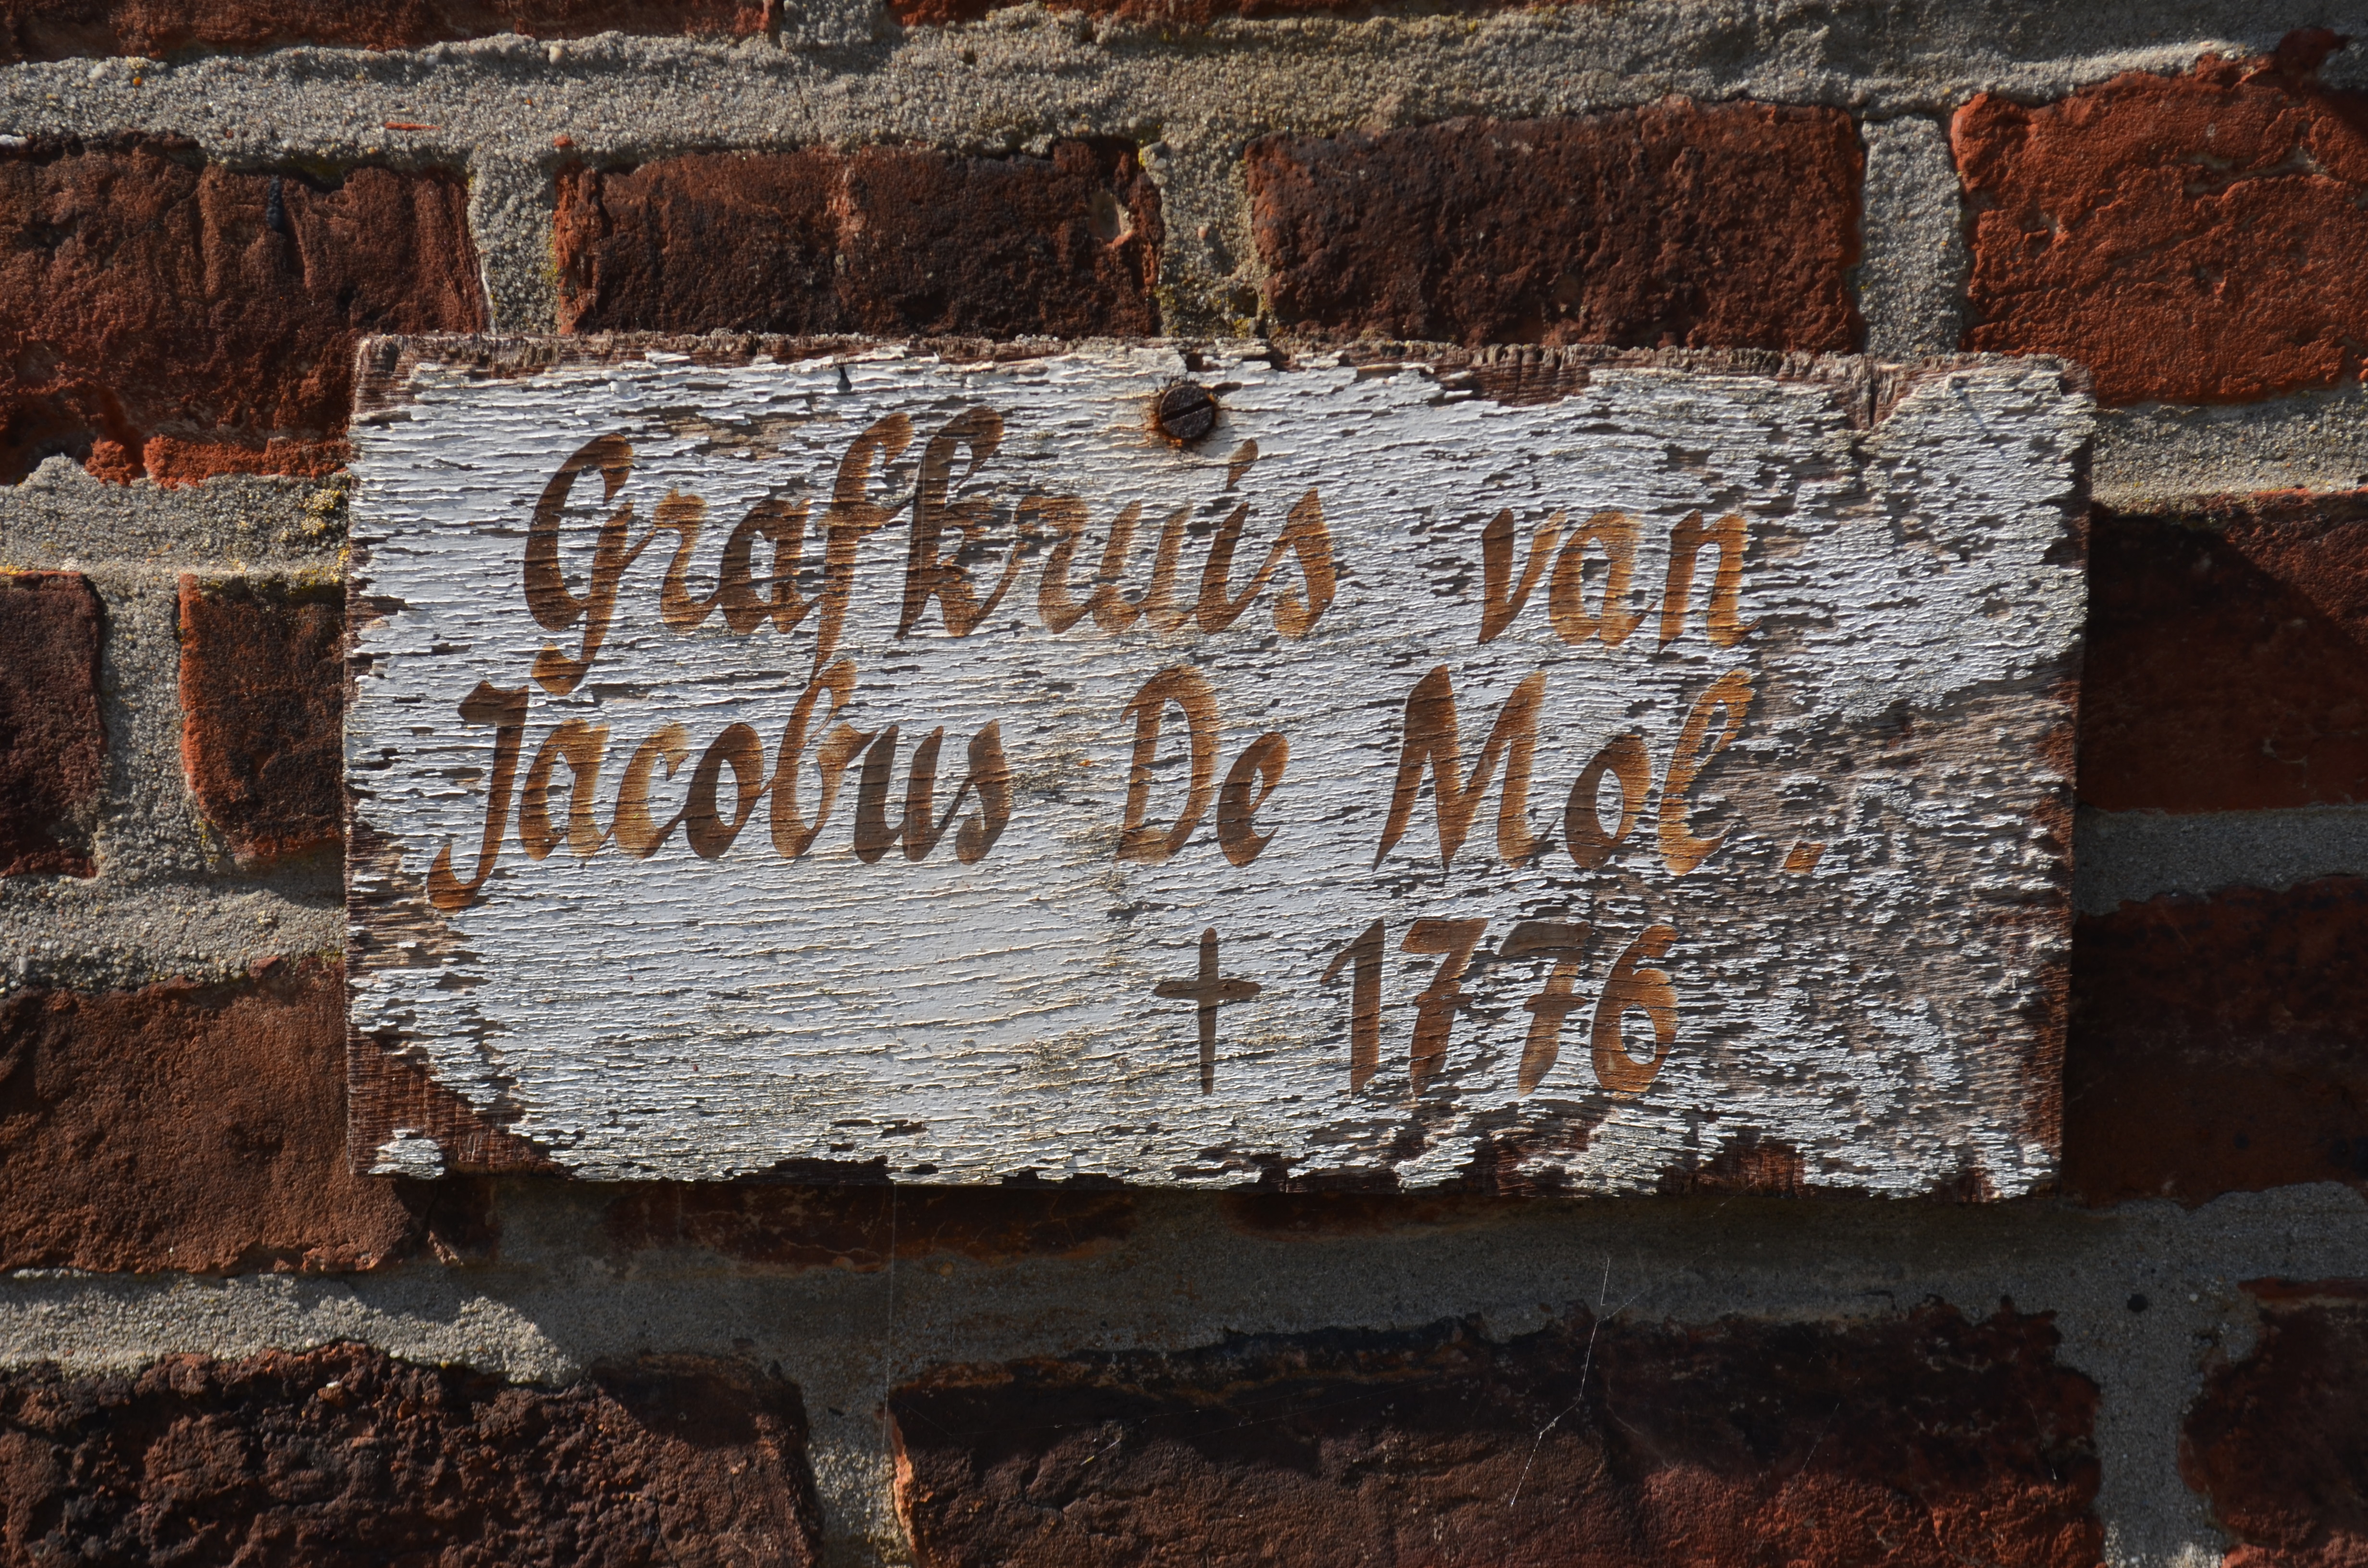 Grafkruis van
Jacobus De Mol.
† 1776